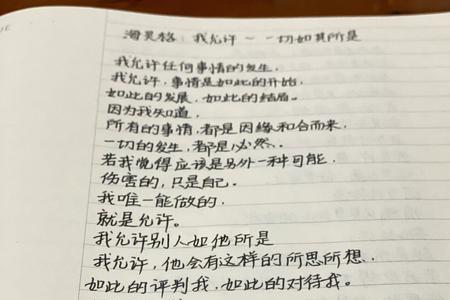 海灵格：我允许～一切如其所是
我允许任何事情的发生.
我允许,事情是如此的开始,
如此的发展,如此的结局。
因为我知道,
所有的事情,都是因緣和合而来,
一切的发生,都是必然.
若我觉得应该是另外一种可能,
伤害的,只是自己.
我唯一能做的,
就是允许。
我允许别人如他所是
我允许,他会有这样的所思所想,
如此的评判我,如此的对待我。